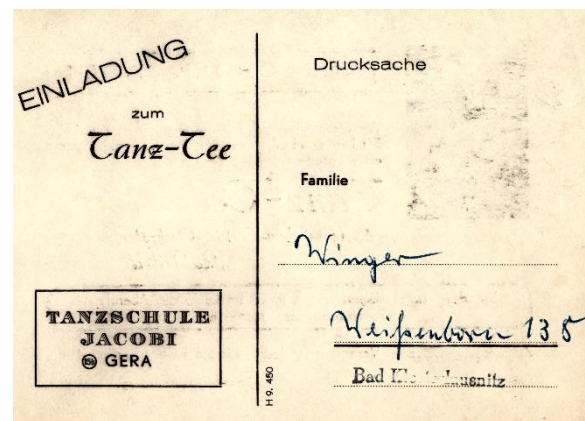 EINLADUNG
zum
Tanz-Tee
TANZSCHULE
JACOBI
15b GERA
H 9. 450
Drucksache
Familie
Winger
Weißenborn 135
Bad